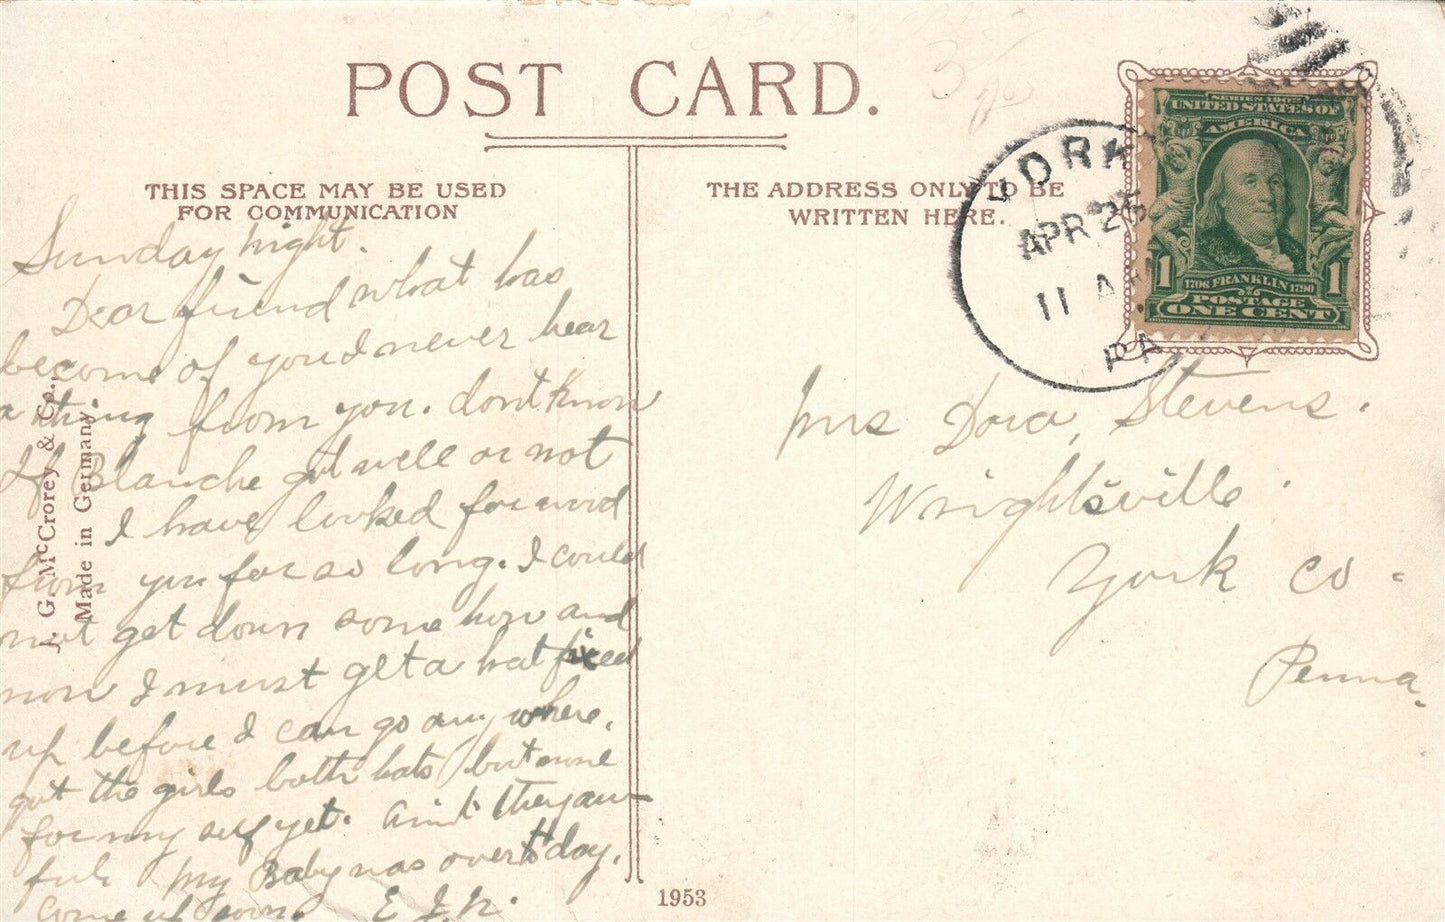 POST CARD.
THIS SPACE MAY BE USED
FOR COMMUNICATION
THE ADDRESS ONLY TO BE
WRITTEN HERE.
YORK
APR 25
11 A
PA
SERIES 1902
UNITED STATES OF
AMERICA
1706 FRANKLIN 1790
POSTAGE
1 ONE CENT 1
Sunday night.
Dear friend what has
become of you I never hear
a thing from you. dont know
If Blanche got well or not
I have looked for word
from you for so long. I could
not get down some how and
now I must get a hat fixed
up before I can go any where.
got the girls both hats but none
for my self yet. Aint they aw-
ful my Baby was over to day.
Come up soon. E J. N.
J. G. McCrorey & Co.,
Made in Germany
Mrs Dora, Stevens.
Wrightsville.
York Co-
Penna.
1953